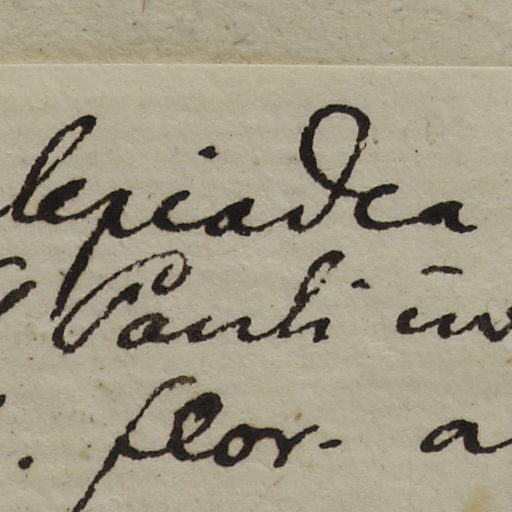 lepiadea
Pauli in
. flor. a